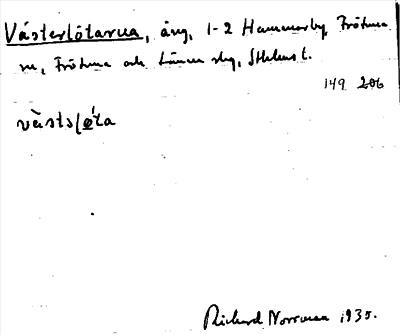 Västerlötarna, äng, 1-2 Hammarby, Frötuna
sn, Frötuna och Länna skg, Sthlms l.
149 206
vä̀sts/ø̀ta
Richard Norrman 1935.